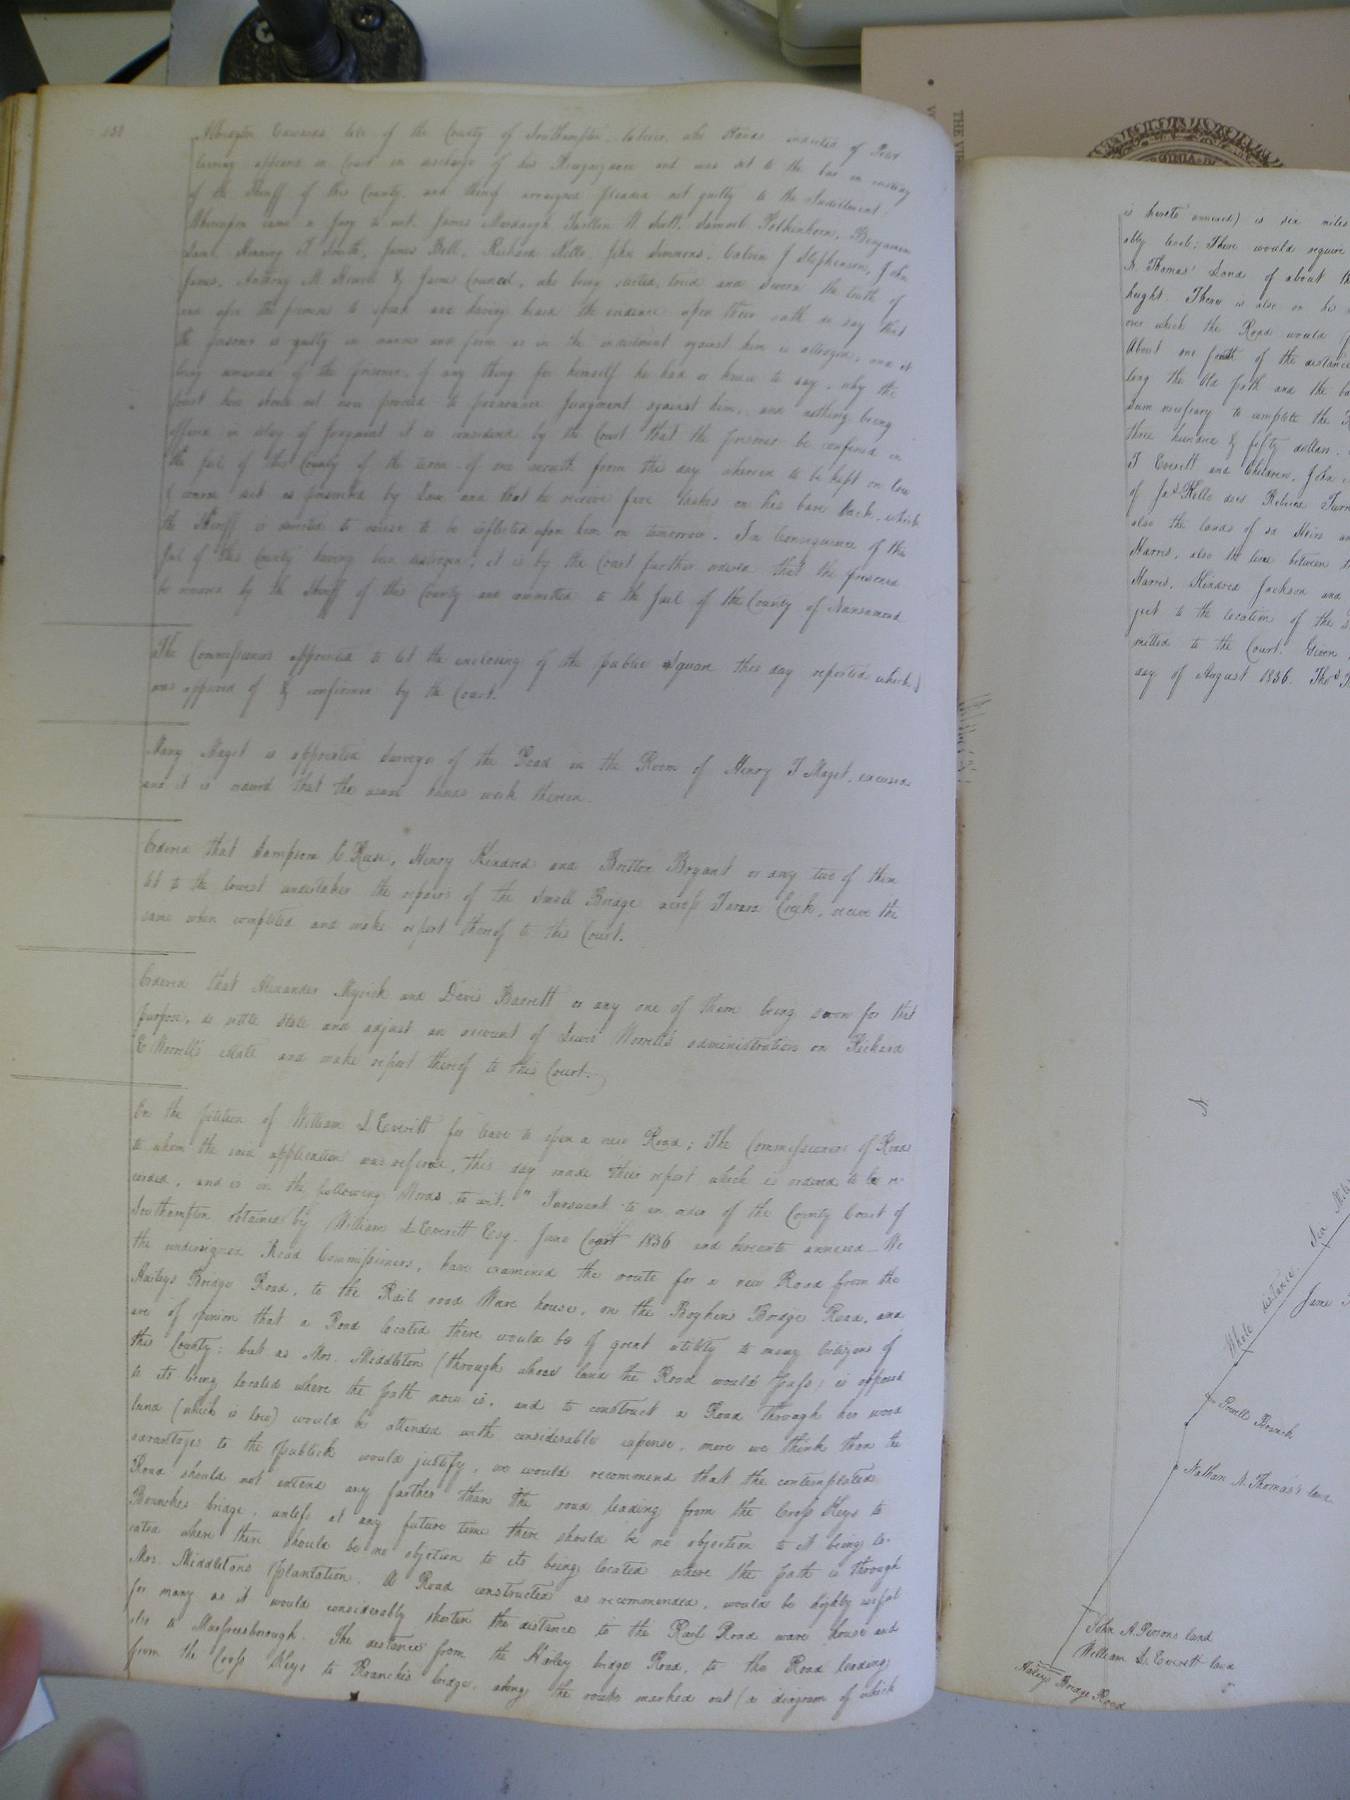 138
Albridgton Edwards late of the County of Southampton, labourer, who stands indicted of
larceny appears in Court in discharge of his Recognizance and was set to the bar in custody
of the Sheriff of this County, and being arraigned pleaded not guilty to the Indictment.
Whereupon came a Jury to wit, James Murdaugh, N. Scott, Samuel Benjamin
Henning T. Smith, James Bell, Richard Kello, John Simmons, Calvin J Stephenson, John
James, Anthony M. & James Council, who being elected, tried and sworn the truth of
and upon the premises to speak and having heard the evidence upon their oath do say that
the prisoner is guilty in manner and form as in the indictment against him is alledged, and it
being demanded of the prisoner, if any thing for himself he had or knew to say, why the
Court here should not now proceed to pronounce judgment against him, and nothing being
offered in delay of judgment it is considered by the Court that the prisoner be confined in
the jail of this County of the term of one month from this day wherein to be kept on low
& coarse diet as prescribed by Law and that he receive five lashes on his bare back, which
the Sheriff is directed to cause to be inflicted upon him on tomorrow. In Consequence of the
Jail of this County having been destroyed, it is by the Court further ordered that the prisoner
be removed by the Sheriff of this County and committed to the Jail of the County of Nansemond
The Commissioners appointed to let the enclosing of the public Square this day reported which
was approved of & confirmed by the Court.
Many Maget is appointed Surveyor of the Road in the Room of Henry T Maget, excused
and it is ordered that the usual hands work thereon.
Ordered that Sampson C. Reese, Henry Kindred and Britton Bryant or any two of them
let to the lowest undertaker the repairs of the Small Bridge across Tarara Creek, receive the
same when completed and make report thereof to this Court.
Ordered that Alexander Myrick and Davis Barrett or any one of them being sworn for that
purpose, do settle state and adjust an account of Lewis Worrell's administration on Richard
E. Worrell's estate and make report thereof to this Court.
On the petition of William D Everitt for leave to open a new Road; The Commissioners of Roads
to whom the said application was referred, this day made their report which is ordered to be re-
corded, and is in the following Words, to wit, "Pursuant to an order of the County Court of
Southampton obtained by William D Everett Esq. June Court 1836 and hereunto annexed – We
the undersigned Road Commissioners, have examined the route for a new Road from the
Haileys Bridge Road, to the Rail road Ware house, on the Boykins Bridge Road, and
are of opinion that a Road located there would be of great utility to many Citizens of
this County; but as Mrs. Middleton (through whose land the Road would pass) is opposed
to its being located where the path now is, and to construct a Road through her wood
land (which is low) would be attended with considerable expense, more we think than the
advantages to the publick would justify, we would recommend that the contemplated
Road should not extend any farther than the road leading from the Cross Keys to
Branches bridge, unless at any future time there should be no objection to it being lo-
cated where there should be no objection to its being located where the path is through
Mrs. Middletons plantation. A Road constructed as recommended, would be highly useful
for many as it would considerably shorten the distance to the Rail Road ware house and
also to Murfreesborough. The distance from the Hailey bridge Road, to the Road leading
from the Cross Keys to Branches bridge, along the route marked out (a diagram of which
is hereto annexed) is six miles
ably level; There would require
N. Thomas' Land of about
height. There is also on his
over which the Road would
About one fourth of the distance
long the Old path and the
sum necessary to complete the
three hundred & fifty dollars.
T Everett and Children, John
of Jas. Kello decd Rebecca Turn
also the lands of sd Heirs an
Harris, also the line between
Harris, Kindred Jackson and
ject to the location of the
mitted to the Court. Given
day of August 1836. Thos.
N
Whole distance Six Miles
Jane
Powells Branch
Nathan N. Thomas's land
John A. Persons land
William D. Everett land
Haleys Bridge Road
THE VI